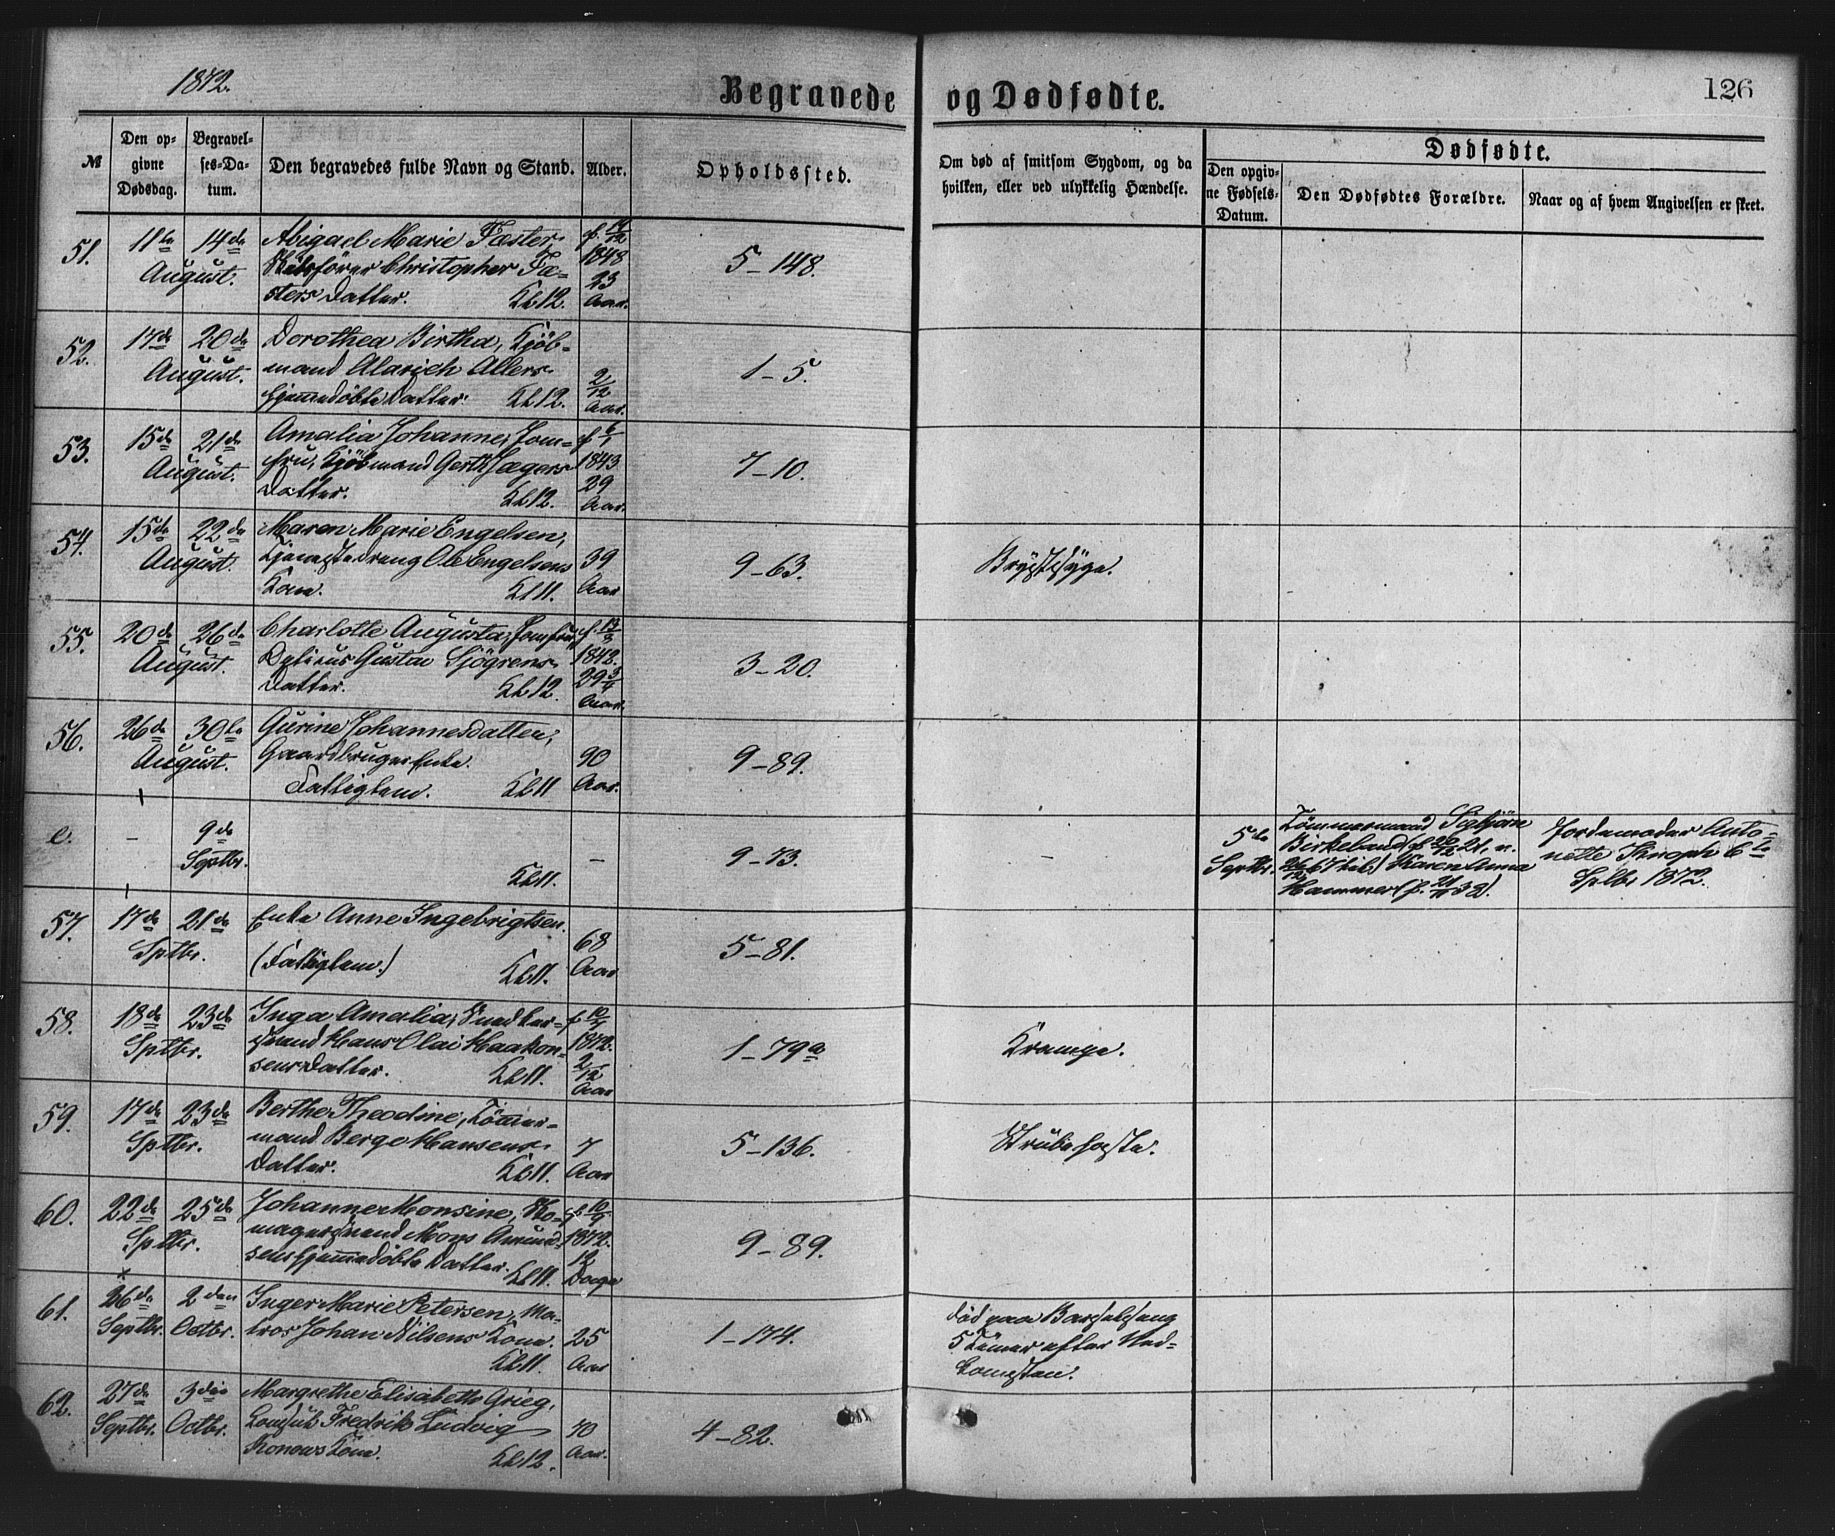 1872.
Begravede og Dødfødte.
126
№
Den opgivne Dødsdag.
Begravelses-Datum.
Den begravedes fulde Navn og Stand.
Alder.
Opholdssted.
Om død af smitsom Sygdom, og da hvilken, eller ved ulykkelig Hændelse.
Dødfødte.
Den opgivne Fødsels-Datum.
Den Dødfødtes Forældre.
Naar og af hvem Angivelsen er skeet.
51. 11te August. 14de
Abigael Marie Fæster,
Christopher Fæ-
sters Datter. Kl 12.
f. 1848
23 Aar.
5–148.
52. 17de August. 20de
Dorothea Birtha, Kjöb-
mand Alarich Allers
hjemmedöbte Datter. Kl 12.
2/12 Aar.
1–5.
53. 15de August. 21de
Amalia Johanne, Jom-
fru, Kjöbmand Gerth Jægers
Datter. Kl 12.
f. 6/1 1843
29 Aar.
7–10.
54. 15de August. 22de
Maren Marie Engelsen,
Tjenestedreng Ole Engelsens
Kone. Kl 11.
39 Aar
9–63.
Brystsyge.
55. 20de August. 26de
Charlotte Augusta, Jomfru,
Gustav Sjögrens
Datter. Kl 12.
f. 1842.
29 3/4 Aar.
3–20.
56. 26de August. 30te
Gurine Johannesdatter,
Gaardbruger Enke.
Fattiglem. Kl 11
90 Aar.
9–89.
e. – 9de Septbr.
Kl 11.
–
9–73.
5te Septbr.
Tömmermand Sigbjörn
Birkeland
Karen Anna
Hammer
Jordemoder Anto-
nette 6te
Sptbr 1872.
57. 17de Sptbr. 21de
Enke Anne Ingebrigtsen.
(Fattiglem.) Kl 11.
68 Aar
5–81.
58. 18de Sptbr. 23de
Inga Amalia,
Hans Olai Haakon-
sens Datter. Kl 11.
1872.
2/12 Aar
1–79a
Krampe.
59. 17de Sptbr. 23de
Berthe Theodine, Tömmer-
mand Berge Hansens
Datter. Kl 11.
7 Aar
5–136.
Strubehoste.
60. 22de Sptbr. 25de
Johanne Monsine,
Mons Amund-
sens hjemmedöbte Datter. Kl 11.
f. 10/9 1872.
12 Dage
9–89.
61. 26de Septbr. 2den Octbr.
Inger Marie Petersen, Ma-
tros Johan Nilsens Kone.
Kl 11.
25 Aar
1–174.
död paa Barselseng
5 Timer efter Ned-
komsten.
62. 27de Septbr. 3die Octbr.
Margrethe Elisabeth Grieg,
Konsul Fredrik Ludvig
Konows Kone. Kl 12.
70 Aar.
4–82.